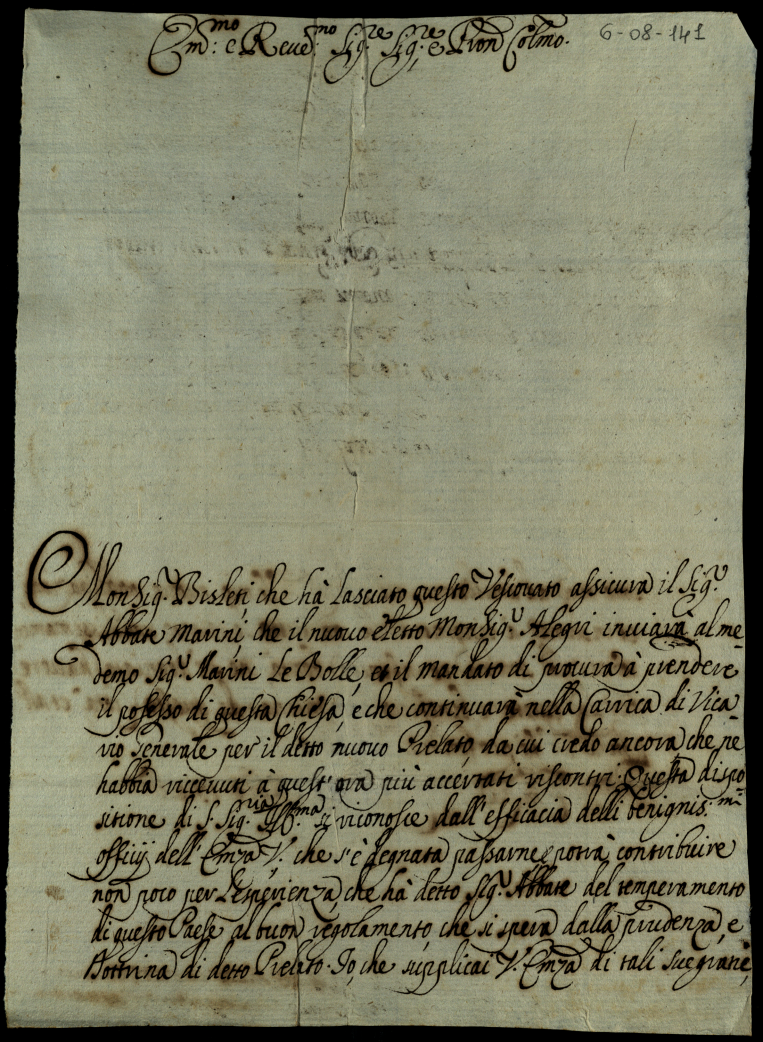 Em.mo e Reue.mo Sig.re Sig.re e Pron Colmo.
6-08-141
MonSig.r Bisleti che hà lasciato questo Vescouato assicura il Sig.r
Abbate Marini, che il nuouo eletto MonSig.r Alegri inuiarà al me=
demo Sig.r Marini le Bolle, et il mandato di procura à prendere
il posesso di questa Chiesa, e che continuarà nella Carrica di Vica=
rio Generale per il detto nuouo Prelato, da cui credo ancora che ne
habbia riceuuti à quest' ora più accertati riscontri. Questa dispo
sitione di S. Sig.ria Ill.ma si riconosce dall' efficacia delli benignis.mi
officij dell' Emza V. che s'è degnata passarne, e potrà contribuire
non poco per l'esperienza, che hà detto Sig.r Abbate del temperamento
di questo Paese al buon regolamento, che si spera dalla prudenza, e
Dottrina di detto Prelato. Io, che supplicai V. Emza di tali sue gratie,